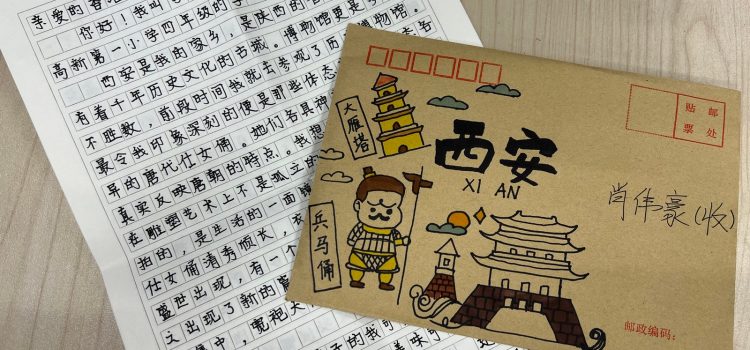 亲爱的香港
你好！我叫
高新第一小学四年级的学
西安是我的家乡，是陕西的省
有着千年历史文化的古城。博物馆更是
不胜数，前段时间我就去参观了历
博物馆。
最令我印象深刻的便是那些体态
各
异的唐代仕女俑。她们各具神
真实反映唐朝的特点。我想
在雕塑艺术上不是孤立的
拍的，是生活的一面镜
仕女俑清秀颀长，衣
盛世出现，有一个
文出现了新的
中，宽袍大
子的我可
美味
大雁塔
西安
XI AN
兵马俑
贴邮
票处
肖伟豪(收)
邮政编码：